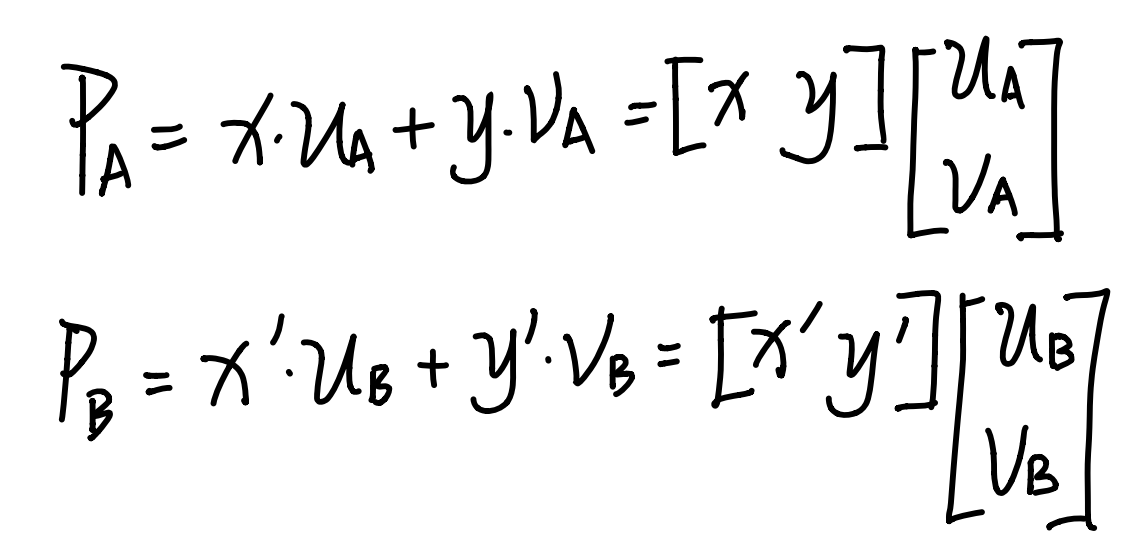 P_A = x·u_A + y·v_A = [x y] [u_A v_A]
P_B = x'·u_B + y'·v_B = [x' y'] [u_B v_B]